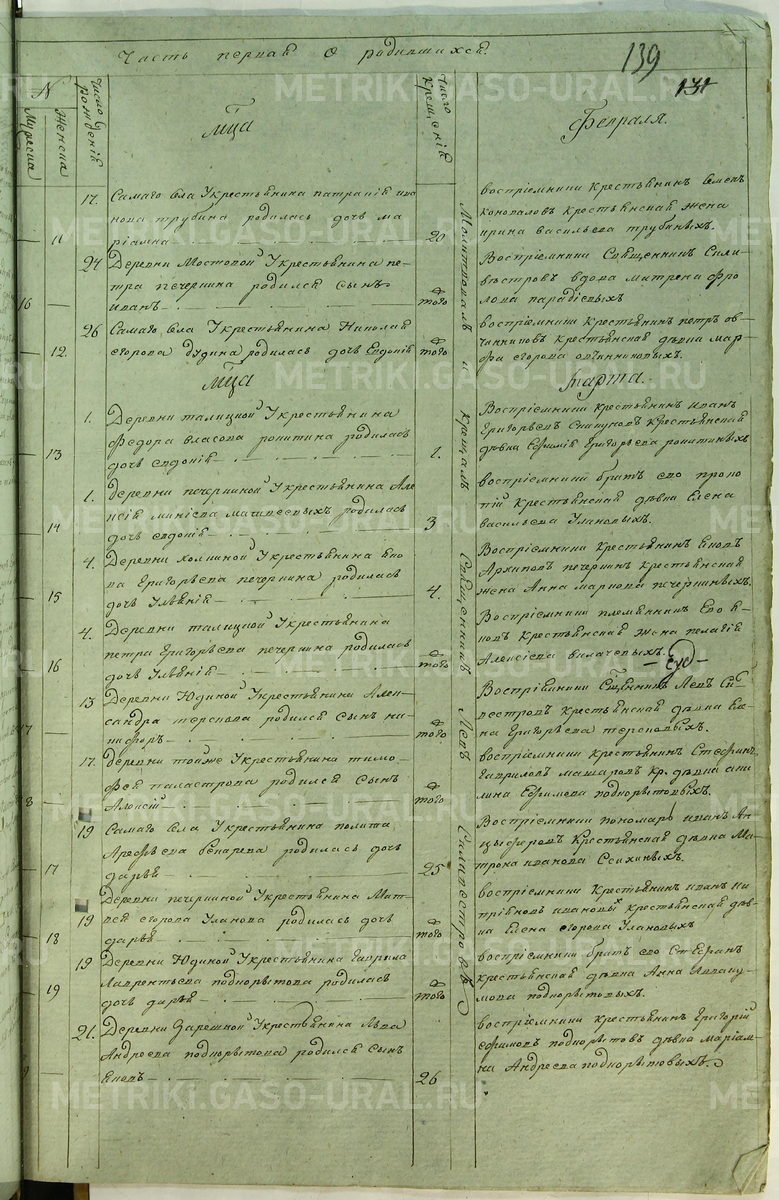 Часть первая О родившихся.
139
131
№
Мужеска
Женска
Число рождений
Мца
Число крещений
Февраля.
17.
Самаго села У крестьянина патракия ива
нова трубина родилась дочь ма
риамна
11
20
восприемники крестьянин Семен
коновалов крестьянская жена
ирина васильева трубиных.
24
Деревни Мостовой У крестьянина пе
тра печеркина родился сынъ
иванъ
16
того
Восприемники Священник Силь
вестровъ вдова матрена фро
лова
26
Самаго села У крестьянина Николая
егорова дудина родилась дочь Евдокия
12.
того
восприемники крестьянинъ петръ ов
чинников крестьянская девка мар
фа егорова овчинниковыхъ.
Мца
Марта.
1.
Деревни талицкой У крестьянина
федора власова рокитина родилась
дочь евдокия
13
1.
Восприемники крестьянинъ иванъ
Григорьевъ крестьянская
девка Евфимия Григорьева
1.
деревни печеркиной У крестьянина Але
ксия родилась
дочь евдокия
14
3
восприемники братъ его проко
пий крестьянская девка Елена
васильева Улановыхъ.
4.
Деревни холкиной У крестьянина
Григорьева печеркина родилась
дочь Ульяния
15
4.
Восприемники крестьянинъ Еновъ
Архиповъ печеркинъ крестьянская
жена Анна маркова печеркиныхъ.
4.
Деревни талицкой У крестьянина
петра Григорьева печеркина родилась
дочь Ульяния
16
того
Восприемники племянникъ его
крестьянская жена пелагия
Алексиева
13
Деревни Юдиной У крестьянина Алек
сандра терехова родился сынъ ни
кифоръ
17
того
Восприемники Священникъ Левъ Сил
вестровъ крестьянская девка Еле
на Григорьева тереховыхъ.
17.
Деревни тояже У крестьянина тимо
фея родился Сынъ
Алексий
того
восприемники крестьянинъ Стефанъ
Гавриловъ макаровъ кр. девка аку
лина Ефимова подкорытовыхъ.
19
Самаго села У крестьянина полита
Арефьева Бекарева родилась дочь
дарья
17
25
Восприемники пономарь иванъ Ан
цыферовъ крестьянская девка Ма
трона иванова
19
Деревни печеркиной У крестьянина Мат
вея егорова Уланова родилась дочь
дарья
18
того
восприемники крестьянинъ иванъ
крестьянская дев
ка Елена егорова Улановыхъ
19
Деревни Юдиной У крестьянина Гаврила
Лаврентьева подкорытова родилась
дочь дарья
19
того
восприемники братъ его Стефанъ
крестьянская девка Анна Авваку
мова подкорытовыхъ.
21.
Деревни У крестьянина Льва
Андреева подкорытова родился сынъ
Еновъ
26
восприемники крестьянинъ Григорий
ефимовъ подкорытовъ девка Мариам
на Андреева подкорытовыхъ.
Молитвовалъ и крещалъ Священникъ Левъ Сильвестровъ
METRIKI.GASO-URAL.RU